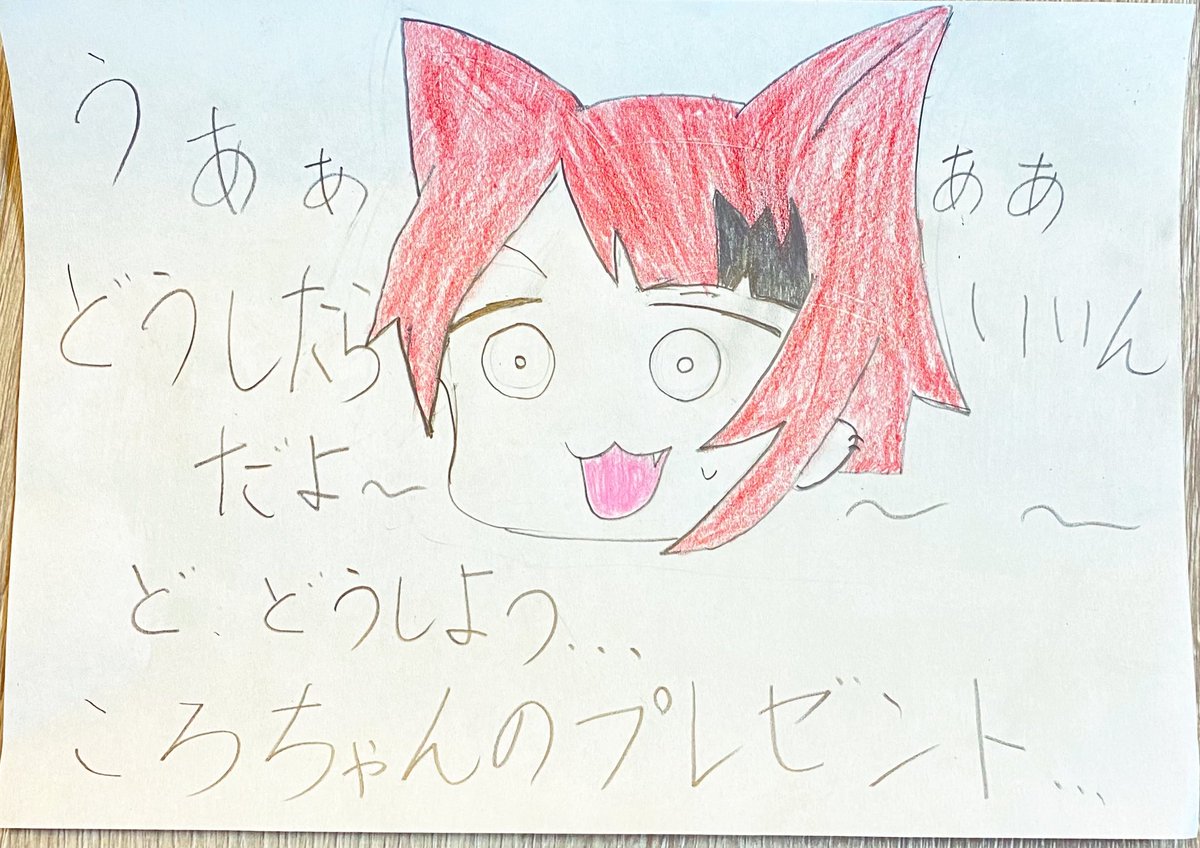 うあぁぁぁ
どうしたらいいん
だよ~~~
ど、どうしよう...
ころちゃんのプレゼント...